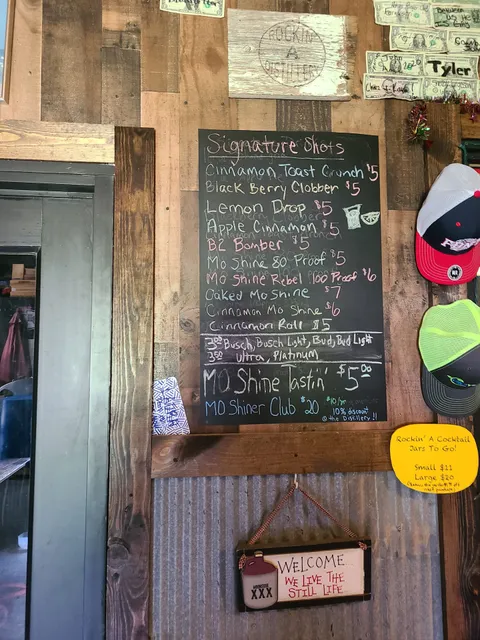 ROCKIN'
A
DISTILLERY
Tyler
Signature Shots
Cinnamon Toast Crunch $5
Black Berry Clobber $5
Lemon Drop $5
Apple Cinnamon $5
B2 Bomber $5
Mo Shine 80 Proof $5
Mo Shine Rebel 100 Proof $6
Oaked Mo Shine $7
Cinnamon Mo Shine $6
Cinnamon Roll $5
Busch, Busch Light, Bud, Bud Light
3.50 Ultra, Platinum
MO Shine Tastin' $5.00
MO Shiner Club $20 $10/yr
10% discount
@ the Distillery!!
Rockin' A Cocktail
Jars To Go!
Small $11
Large $20
WELCOME
WE LIVE THE
STILL LIFE
XXX